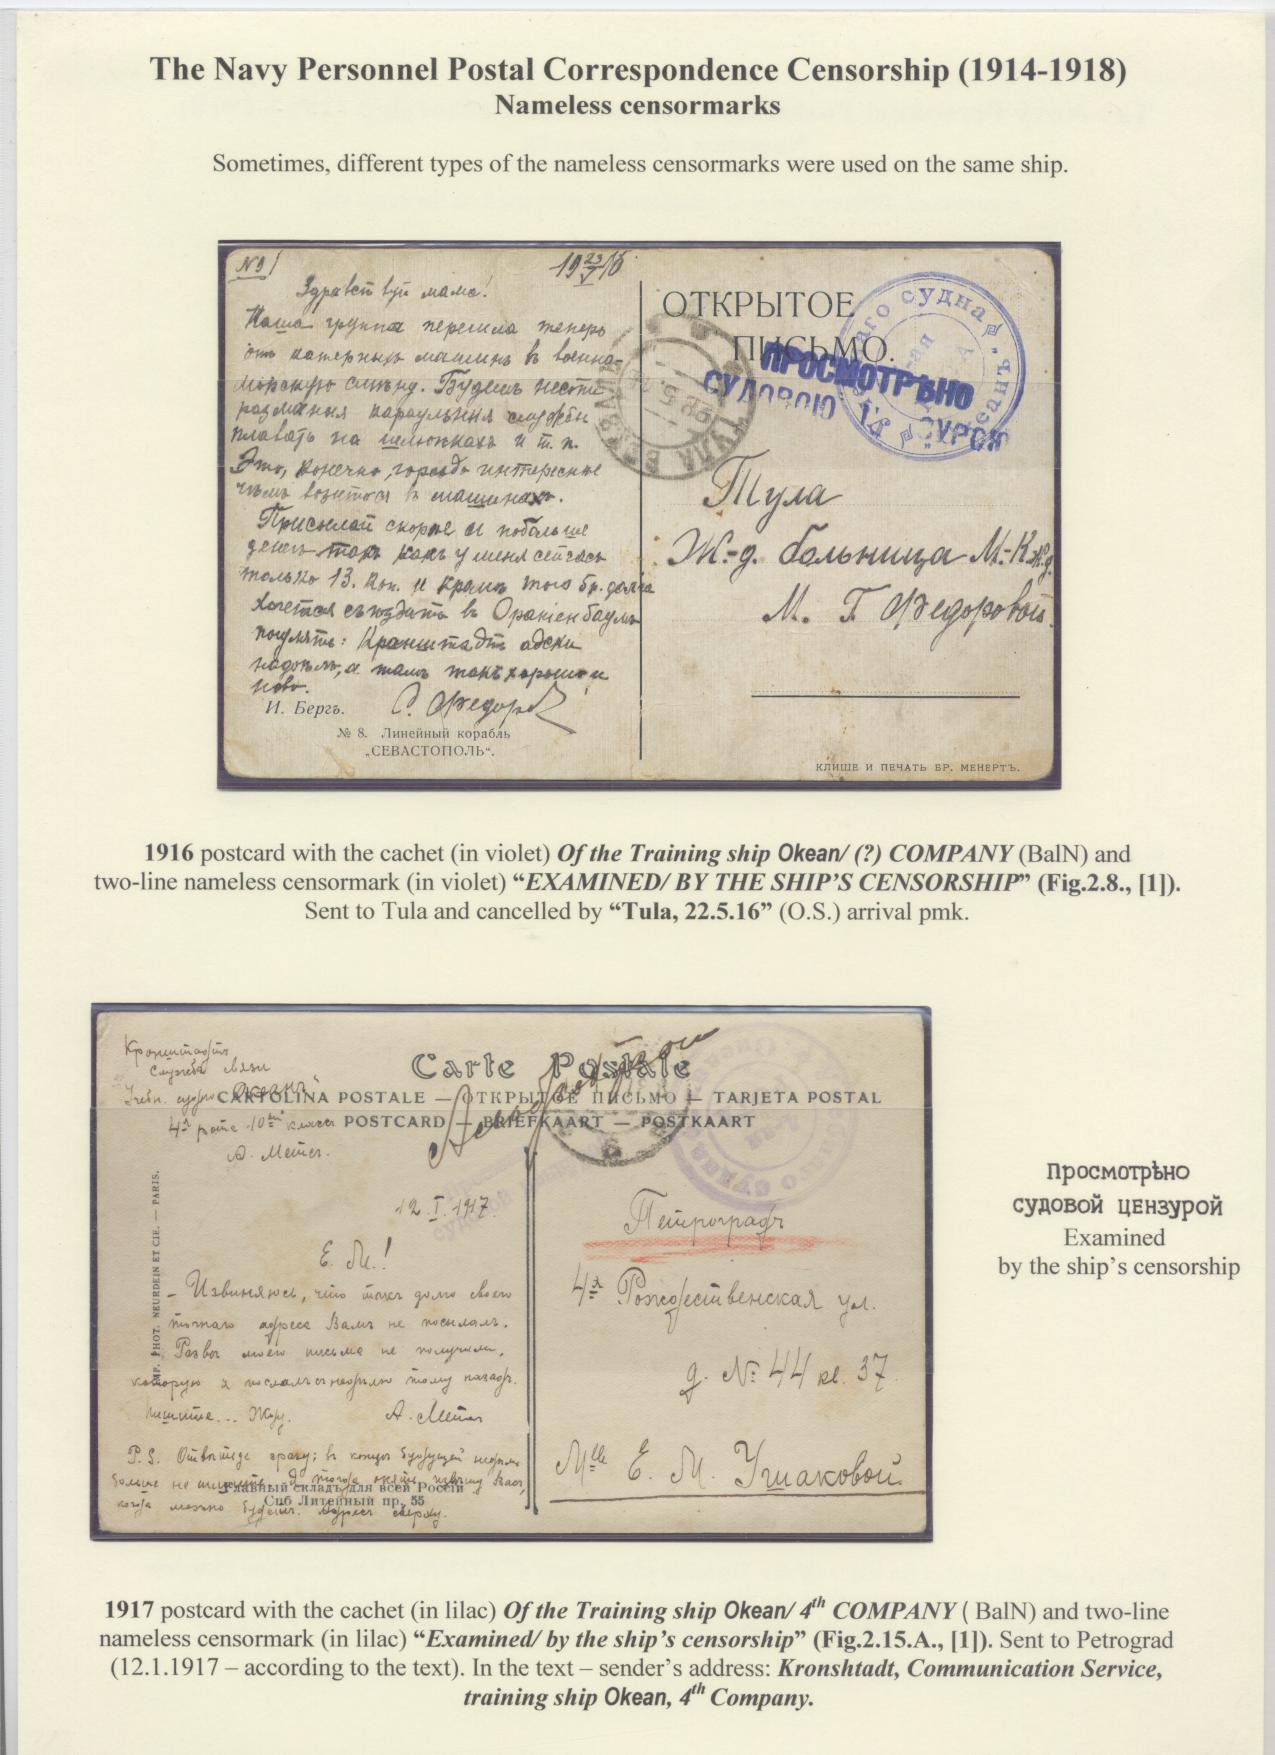 The Navy Personnel Postal Correspondence Censorship (1914-1918)
Nameless censormarks
Sometimes, different types of the nameless censormarks were used on the same ship.
№9
19 23/V 16
Здравствуй мама!
Наша группа перешла теперь
отъ катерныхъ машинъ въ военно-
морскую смѣну. Будемъ нести
различныя караульныя службы
плавать на шлюпкахъ и т. п.
Это, конечно, гораздо интереснѣе
чѣмъ возиться въ машинахъ.
Присылай скорѣе и побольше
денегъ такъ какъ у меня сейчасъ
только 13. коп. и кромѣ того бр. долга
Хочется съѣздить въ Оранiенбаумъ
погулять: Кронштадтъ адски
надоѣлъ, а тамъ такъ хорошо и
ново.
С. Федоров
И. Бергъ.
№ 8. Линейный корабль
„СЕВАСТОПОЛЬ“.
ОТКРЫТОЕ
ПИСЬМО.
ПРОСМОТРѢНО
СУДОВОЮ ЗУРОЮ
аго судна
ТУЛА ВОКЗАЛЪ
Тула
Ж.-д. больница М.-К.ж.д.
М. Г. Федоровой.
КЛИШЕ И ПЕЧАТЬ БР. МЕНЕРТЪ.
1916 postcard with the cachet (in violet) Of the Training ship Okean/ (?) COMPANY (BalN) and
two-line nameless censormark (in violet) “EXAMINED/ BY THE SHIP’S CENSORSHIP” (Fig.2.8., [1]).
Sent to Tula and cancelled by “Tula, 22.5.16” (O.S.) arrival pmk.
Кронштадтъ
Служба связи
Учебн. судно „Океанъ“
4я рота 10й классъ
А. Метс.
Carte Postale
CARTOLINA POSTALE — ОТКРЫТОЕ ПИСЬМО — TARJETA POSTAL
POSTCARD — BRIEFKAART — POSTKAART
12.I.1917.
Е. М.!
— Извиняюсь, что такъ долго своего
точнаго адреса Вамъ не посылалъ.
Развѣ моего письма не получили,
которую я послалъ недѣлю тому назадъ.
Пишите... Жду. А. Метс
P. S. Отвѣтьте сразу; въ концѣ будущей недѣли
больше не пишите. Я тогда опять извѣщу Васъ,
когда можно будетъ. Адресъ сверху.
IMP. PHOT. NEURDEIN ET CIE. — PARIS.
Главный складъ для всей Россiи
Спб Литейный пр. 55
Петроградъ
4я Рождественская ул.
д. № 44 кв. 37.
Mlle Е. М. Ушаковой.
Просмотрѣно
судовой цензурой
Examined
by the ship’s censorship
1917 postcard with the cachet (in lilac) Of the Training ship Okean/ 4th COMPANY ( BalN) and two-line
nameless censormark (in lilac) “Examined/ by the ship’s censorship” (Fig.2.15.A., [1]). Sent to Petrograd
(12.1.1917 – according to the text). In the text – sender’s address: Kronshtadt, Communication Service,
training ship Okean, 4th Company.